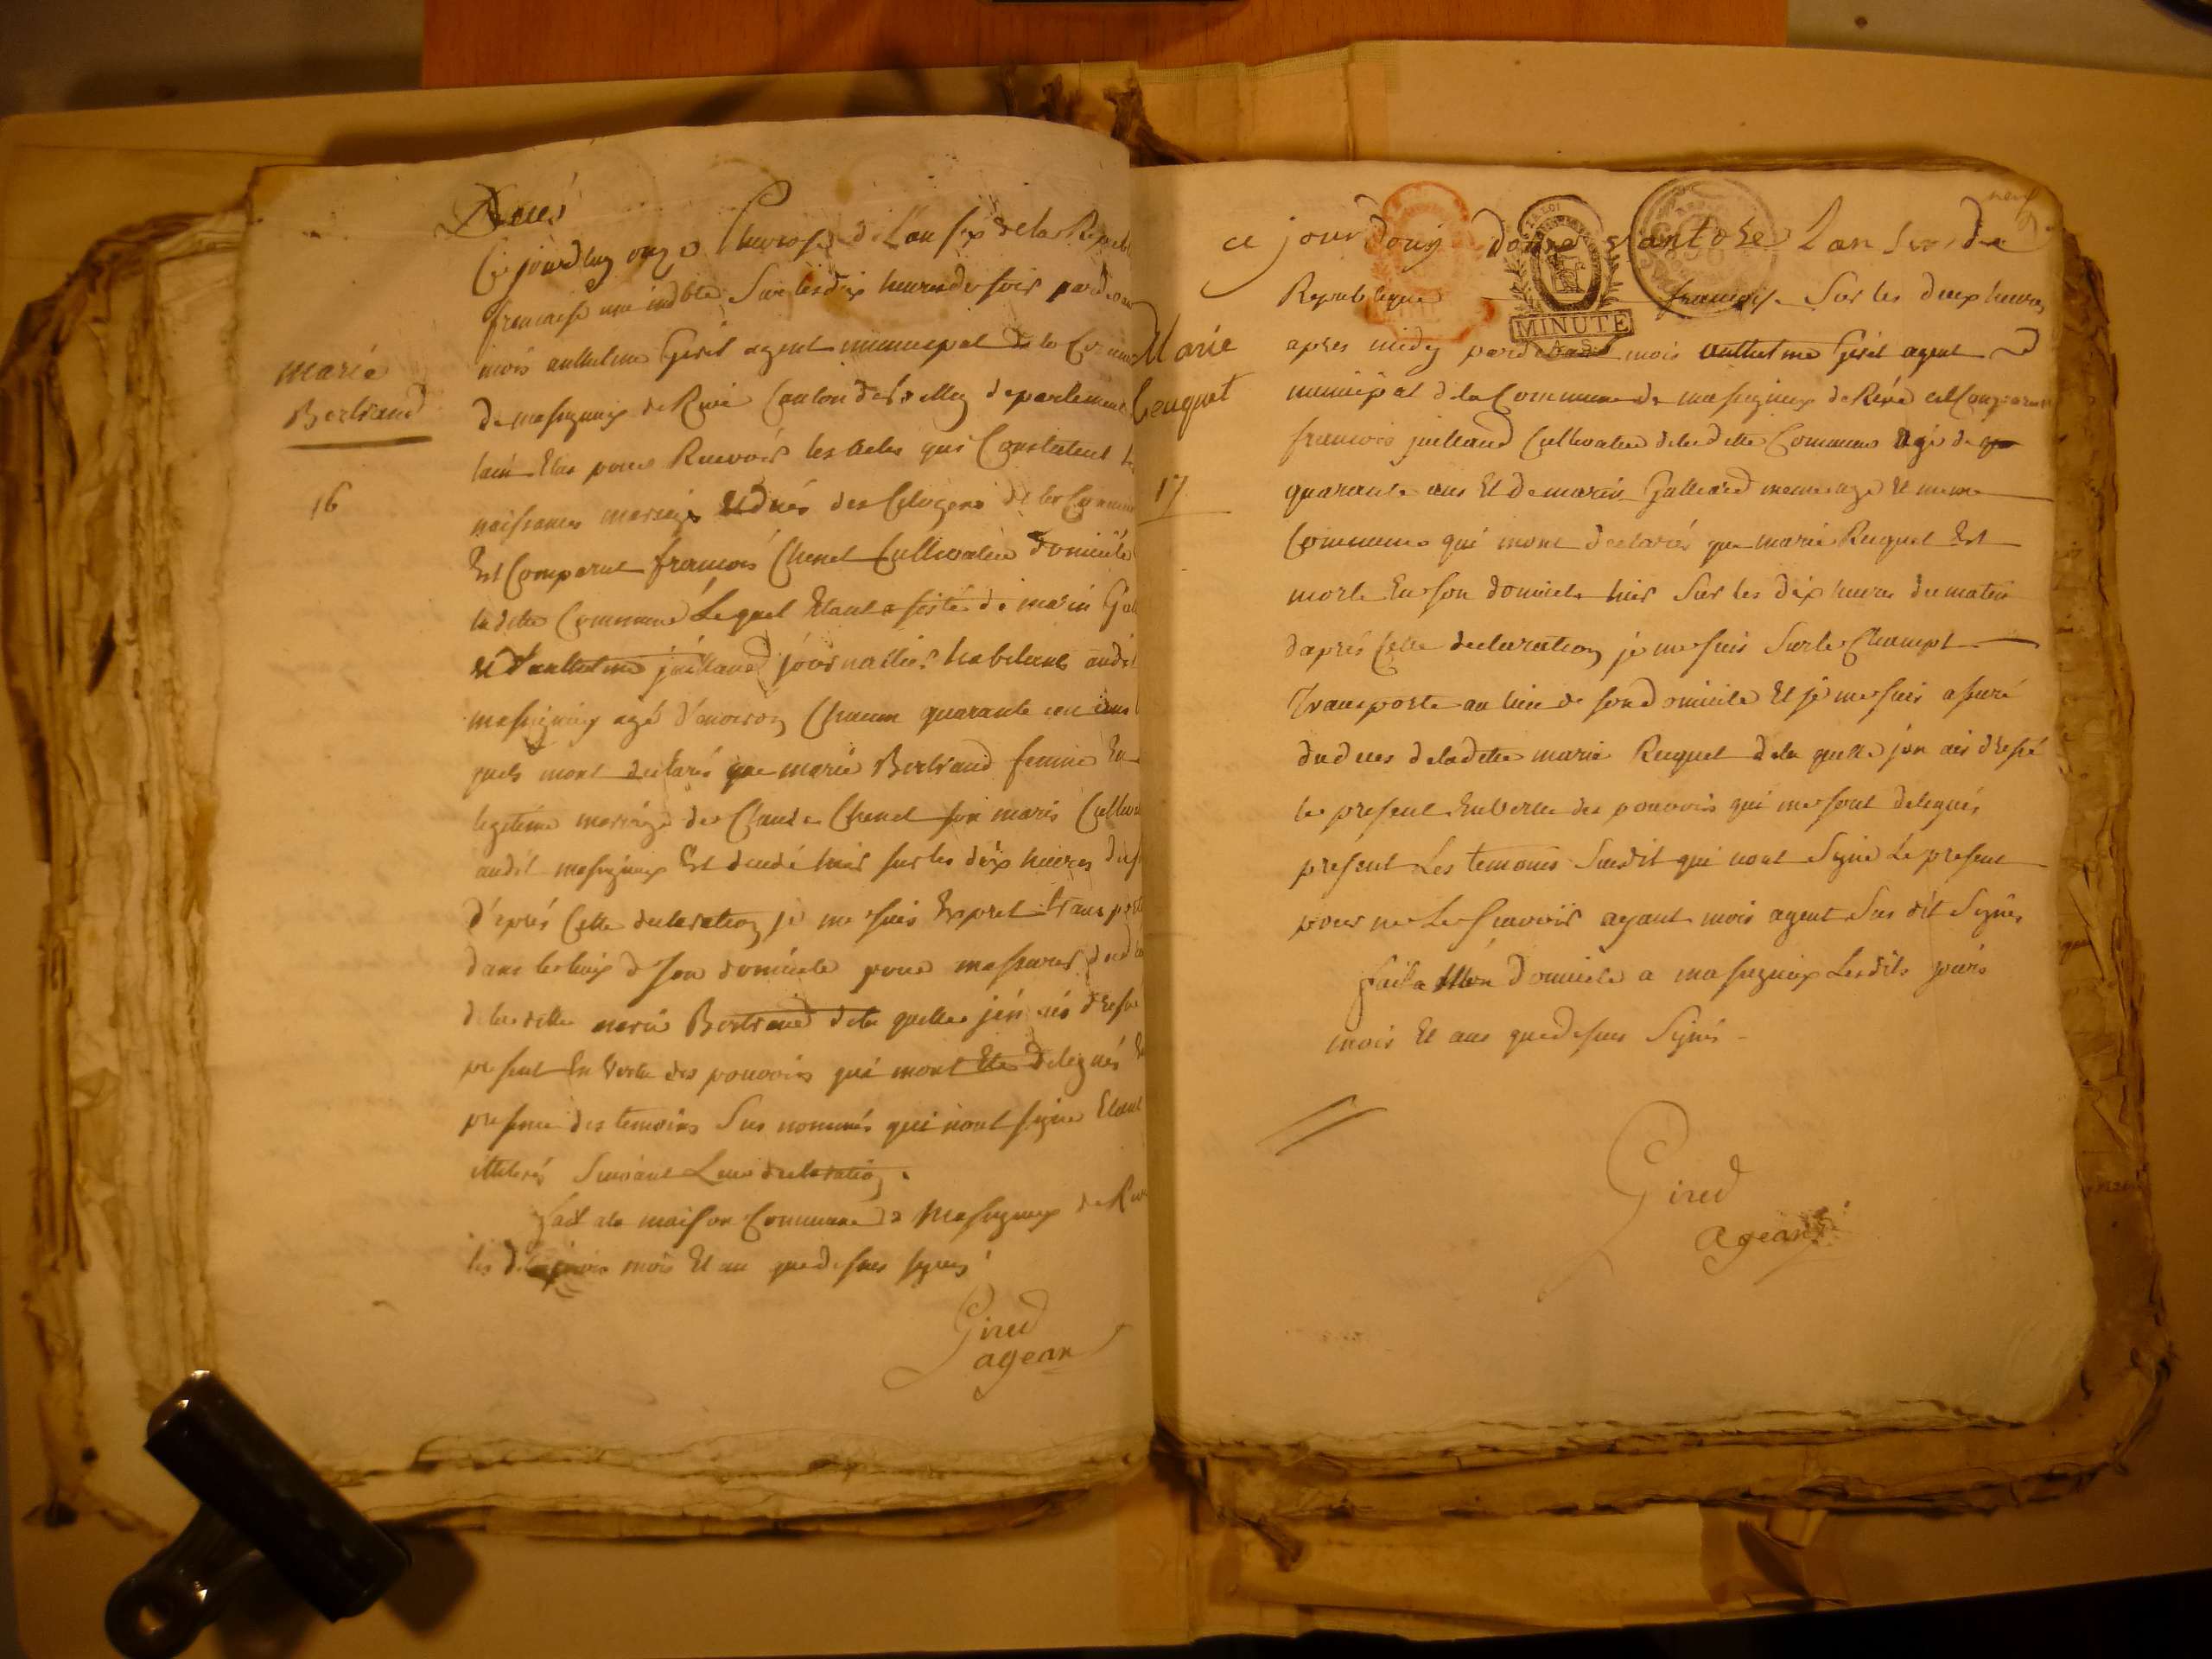 Ducés
Ce jourdhuy onze pluviose de L'an six de la Repub
francaise une indble Sur les dix heures du soir pardevan
mois anthelme Gired agent municipal de la Commun
de massigneux de Rive Canton de belley departement
lain Elue pour Recevoir les actes qui Constatent les
naissances mariages Et ducés des Citoyens de la Commun
Est Comparut francois Chenel Cultivateur domicilé
ladite Commune Lequel Etant assisté de marin Gal
Et d'anthelme juilland journallier habitants audit
massigneux agé d'environ Chacun quarante un ans
quels mont declaré que marie Bertrand femme En
legitime mariage de Claude Chenel son maris Cultiv
audit massigneux Est ducedé hier sur les dix heures du s
d'après Cette declaration je me suis Expret transporté
dans le lieux de son domicile pour massurer du d
de ladite marie Bertrand de la quelle j'en ais dressé
present En vertu des pouvoirs qui mont Etes delegués En
presence des temoins Sus nommés qui nont signé Etant
illiterés Suivant Leur declaration.
fait a la maison Commune de Massigneux de Riv
les dits jours mois Et an que desus signés
Gired
agean
marie
Bertrand
16
neuf
9
ce jourdouy douze vantose Lan six de
Republique francaise Sur les deux heures
apres midy pardevant mois anthelme Gired agent
MINUTE
municipal de la Commune de massigneux de Rive est Comparu
francois juilland Cultivateur de ladite Commune agé de
quarante ans Et de marin Galliard menage Et meme
Commune qui mont declarés que marie Ruquet Est
morte En son domicile hier Sur les dix heures du matin
daprés Cette declaration je me suis Sur le Champt
transporte au lieu de son domicile Et je me suis assuré
du duces de ladite marie Ruquet de la quelle j'en ais dressé
le present En Vertu des pouvoirs qui me sont delegués
present Les temoins Susdit qui nont Signé Le present
pour ne Le scavoir ayant mois agent Sus dit Signés
fait a Mon domicile a massigneux Lesdits jours
mois Et ans que desus Signés
Gired
agean
Marie
17